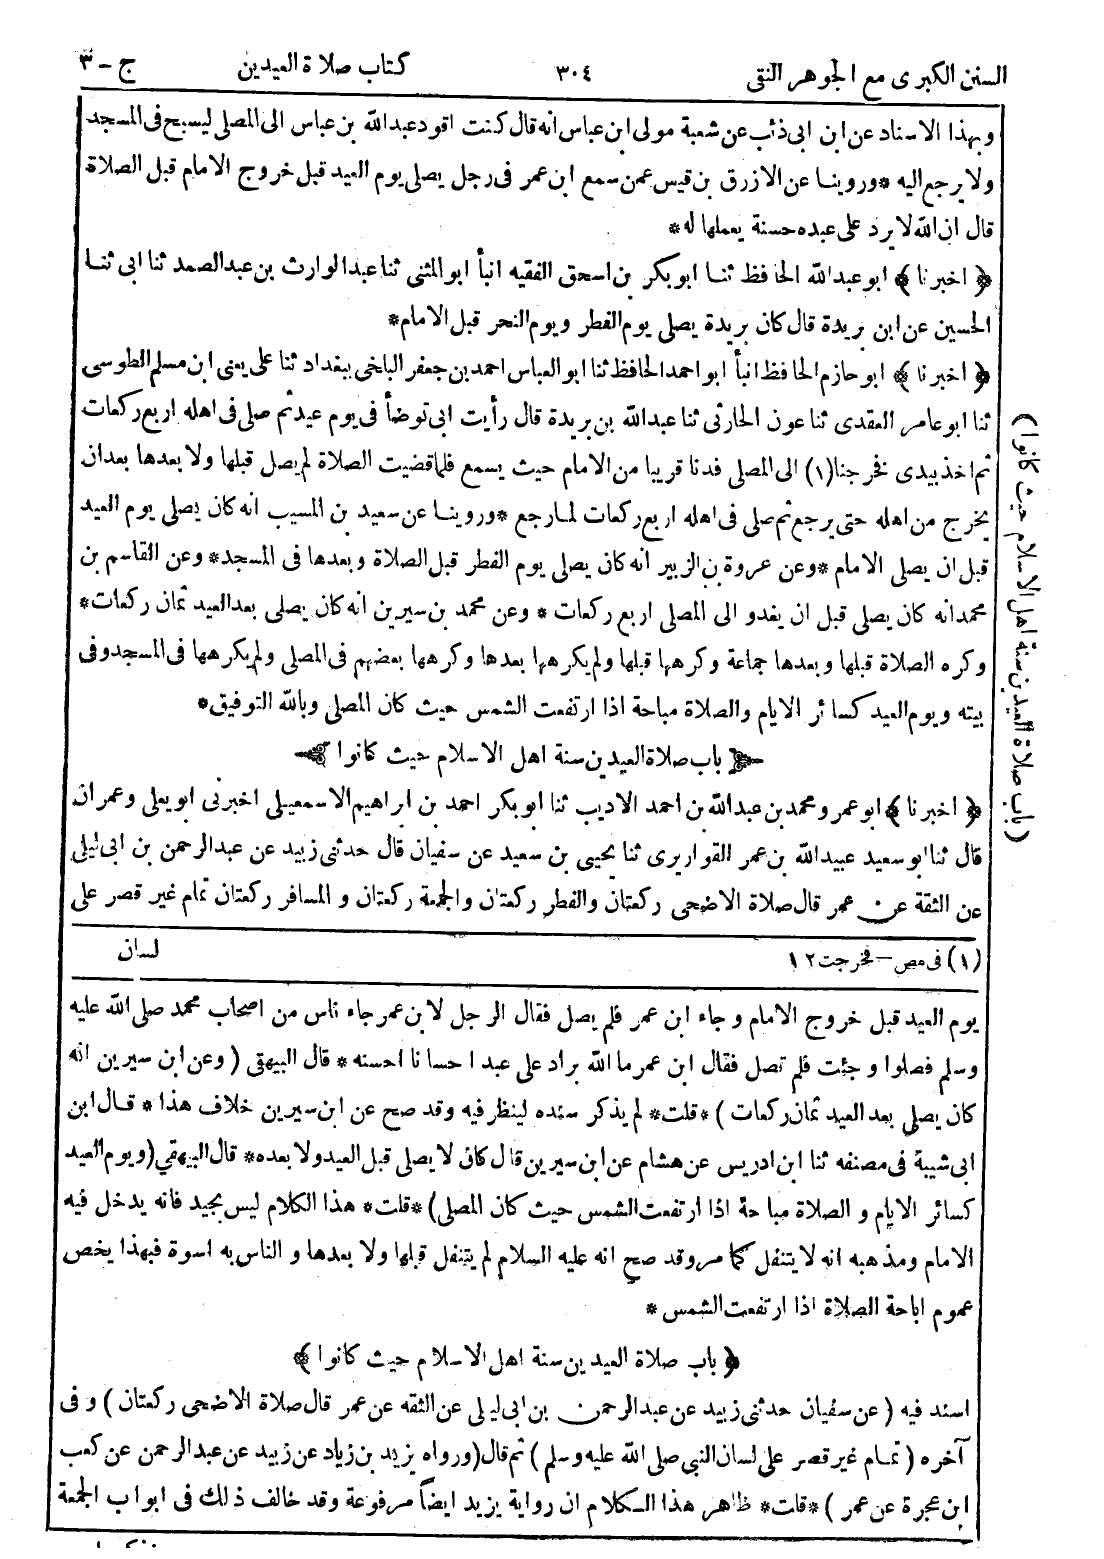 السنن الكبرى مع الجوهر النقى ٣٠٤ كتاب صلاة العيدين ج - ٣
وبهذا الاسناد عن ابن ابى ذئب عن شعبة مولى ابن عباس انه قال كنت اقود عبد الله بن عباس الى المصلى ليسبح فى المسجد
ولا يرجع اليه * وروينا عن الازرق بن قيس عمن سمع ابن عمر فى رجل يصلى يوم العيد قبل خروج الامام قبل الصلاة
قال ان الله لا يرد على عبده حسنة يعملها له *
﴿ اخبرنا ﴾ ابو عبد الله الحافظ ثنا ابو بكر بن اسحق الفقيه انبأ ابو المثنى ثنا عبد الوارث بن عبد الصمد ثنا ابى ثنا
الحسين عن ابن بريدة قال كان بريدة يصلى يوم الفطر ويوم النحر قبل الامام *
﴿ اخبرنا ﴾ ابو حازم الحافظ انبأ ابو احمد الحافظ ثنا ابو العباس احمد بن جعفر البلخى ببغداد ثنا على يعنى ابن مسلم الطوسى
ثنا ابو عامر العقدى ثنا عون الحارثى ثنا عبد الله بن بريدة قال رأيت ابى توضأ فى يوم عيد ثم صلى فى اهله اربع ركعات
ثم اخذ بيدى فخرجنا (١) الى المصلى فدنا قريبا من الامام حيث يسمع فلما قضيت الصلاة لم يصل قبلها ولا بعدها بعد ان
يخرج من اهله حتى يرجع ثم صلى فى اهله اربع ركعات لما رجع * وروينا عن سعيد بن المسيب انه كان يصلى يوم العيد
قبل ان يصلى الامام * وعن عروة بن الزبير انه كان يصلى يوم الفطر قبل الصلاة وبعدها فى المسجد * وعن القاسم بن
محمد انه كان يصلى قبل ان يغدو الى المصلى اربع ركعات * وعن محمد بن سيرين انه كان يصلى بعد العيد ثمان ركعات *
وكره الصلاة قبلها وبعدها جماعة وكرهها قبلها ولم يكرهها بعدها وكرهها بعضهم فى المصلى ولم يكرهها فى المسجد وفى
بيته ويوم العيد كسائر الايام والصلاة مباحة اذا ارتفعت الشمس حيث كان المصلى وبالله التوفيق *
باب صلاة العيدين سنة اهل الاسلام حيث كانوا
﴿ اخبرنا ﴾ ابو عمر ومحمد بن عبد الله بن احمد الاديب ثنا ابو بكر احمد بن ابراهيم الاسمعيلى اخبرنى ابو يعلى وعمران
قال ثنا ابو سعيد عبيد الله بن عمر القواريرى ثنا يحيى بن سعيد عن سفيان قال حدثنى زبيد عن عبد الرحمن بن ابى ليلى
عن الثقة عن عمر قال صلاة الاضحى ركعتان والفطر ركعتان والجمعة ركعتان و المسافر ركعتان تمام غير قصر على
(١) فى مص – فخرجت ١٢ لسان
يوم العيد قبل خروج الامام و جاء ابن عمر فلم يصل فقال الرجل لابن عمر جاء ناس من اصحاب محمد صلى الله عليه
وسلم فصلوا و جئت فلم تصل فقال ابن عمر ما الله براد على عبد احسانا احسنه * قال البيهقى ( وعن ابن سيرين انه
كان يصلى بعد العيد ثمان ركعات ) * قلت * لم يذكر سنده لينظر فيه وقد صح عن ابن سيرين خلاف هذا * قال ابن
ابى شيبة فى مصنفه ثنا ابن ادريس عن هشام عن ابن سيرين قال كان لا يصلى قبل العيد ولا بعده * قال البيهقى (ويوم العيد
كسائر الايام و الصلاة مباحة اذا ارتفعت الشمس حيث كان المصلى) * قلت * هذا الكلام ليس بجيد فانه يدخل فيه
الامام ومذهبه انه لا يتنفل كما مر وقد صح انه عليه السلام لم يتنفل قبلها ولا بعدها و الناس به اسوة فبهذا يخص
عموم اباحة الصلاة اذا ارتفعت الشمس *
﴿ باب صلاة العيدين سنة اهل الاسلام حيث كانوا ﴾
اسند فيه ( عن سفيان حدثنى زبيد عن عبد الرحمن بن ابى ليلى عن الثقه عن عمر قال صلاة الاضحى ركعتان ) و فى
آخره ( تمام غير قصر على لسان النبى صلى الله عليه وسلم ) ثم قال (ورواه يزيد بن زياد عن زبيد عن عبد الرحمن عن كعب
ابن عجرة عن عمر ) * قلت * ظاهر هذا الكلام ان رواية يزيد ايضاً مرفوعة وقد خالف ذلك فى ابواب الجمعة
( باب صلاة العيدين سنة اهل الاسلام حيث كانوا )